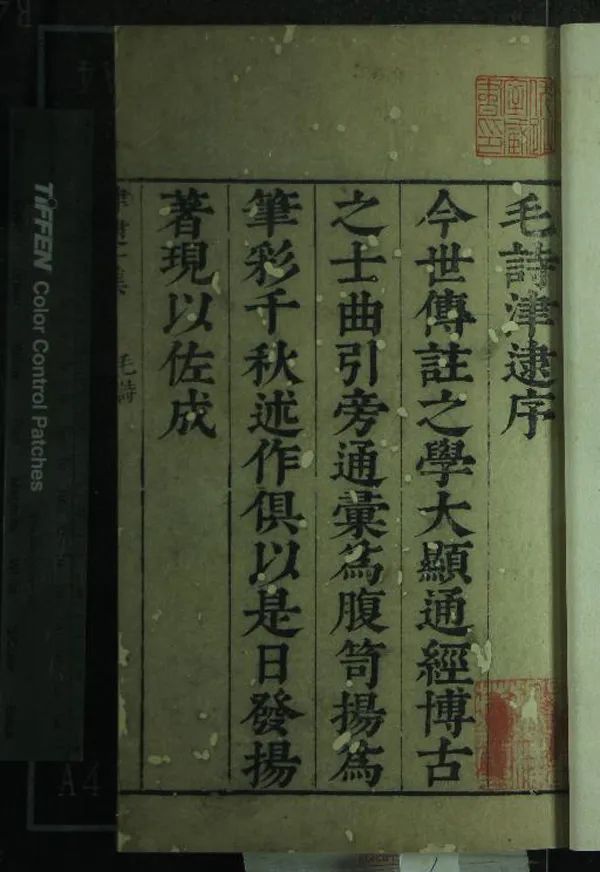 毛詩津逮序
今世傳註之學大顯通經博古
之士曲引旁通彙為腹笥揚為
筆彩千秋述作俱以是日發揚
著現以佐成
毛詩
TIFFEN Color Control Patches
A4